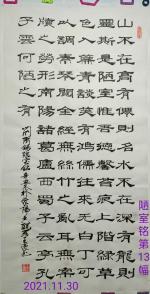 山不在高有僊則名水不在深有龍則
靈斯是陋室惟吾德馨苔痕上階緑草
色入簾青談笑有鴻儒往來無白丁可
以調素琴閱金經無絲竹之亂耳無案
牘之勞形南陽諸葛廬西蜀子雲亭孔
子云何陋之有
劉禹錫陋室銘辛丑
陋室铭第13幅
2021.11.30